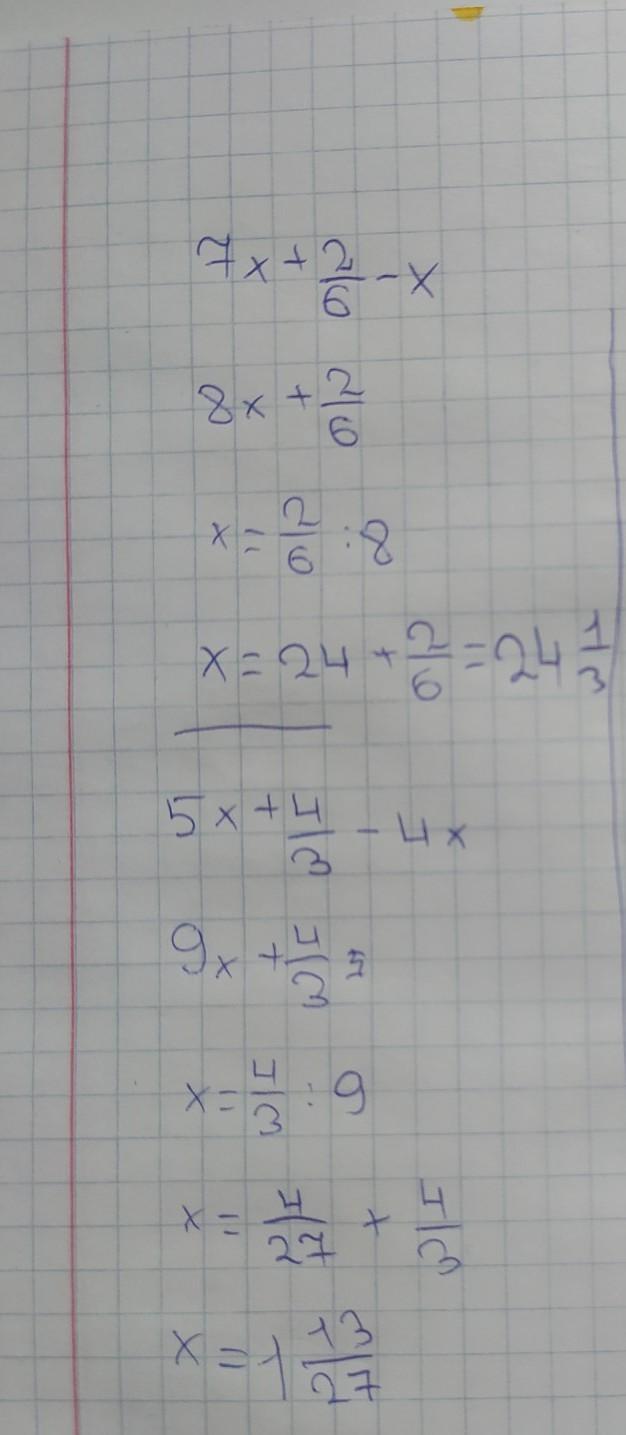 7x + 2/6 - x
8x + 2/6
x = 2/6 : 8
x = 24 + 2/6 = 24 1/3
5x + 4/3 - 4x
9x + 4/3 =
x = 4/3 : 9
x = 4/27 + 4/3
x = 1 13/27